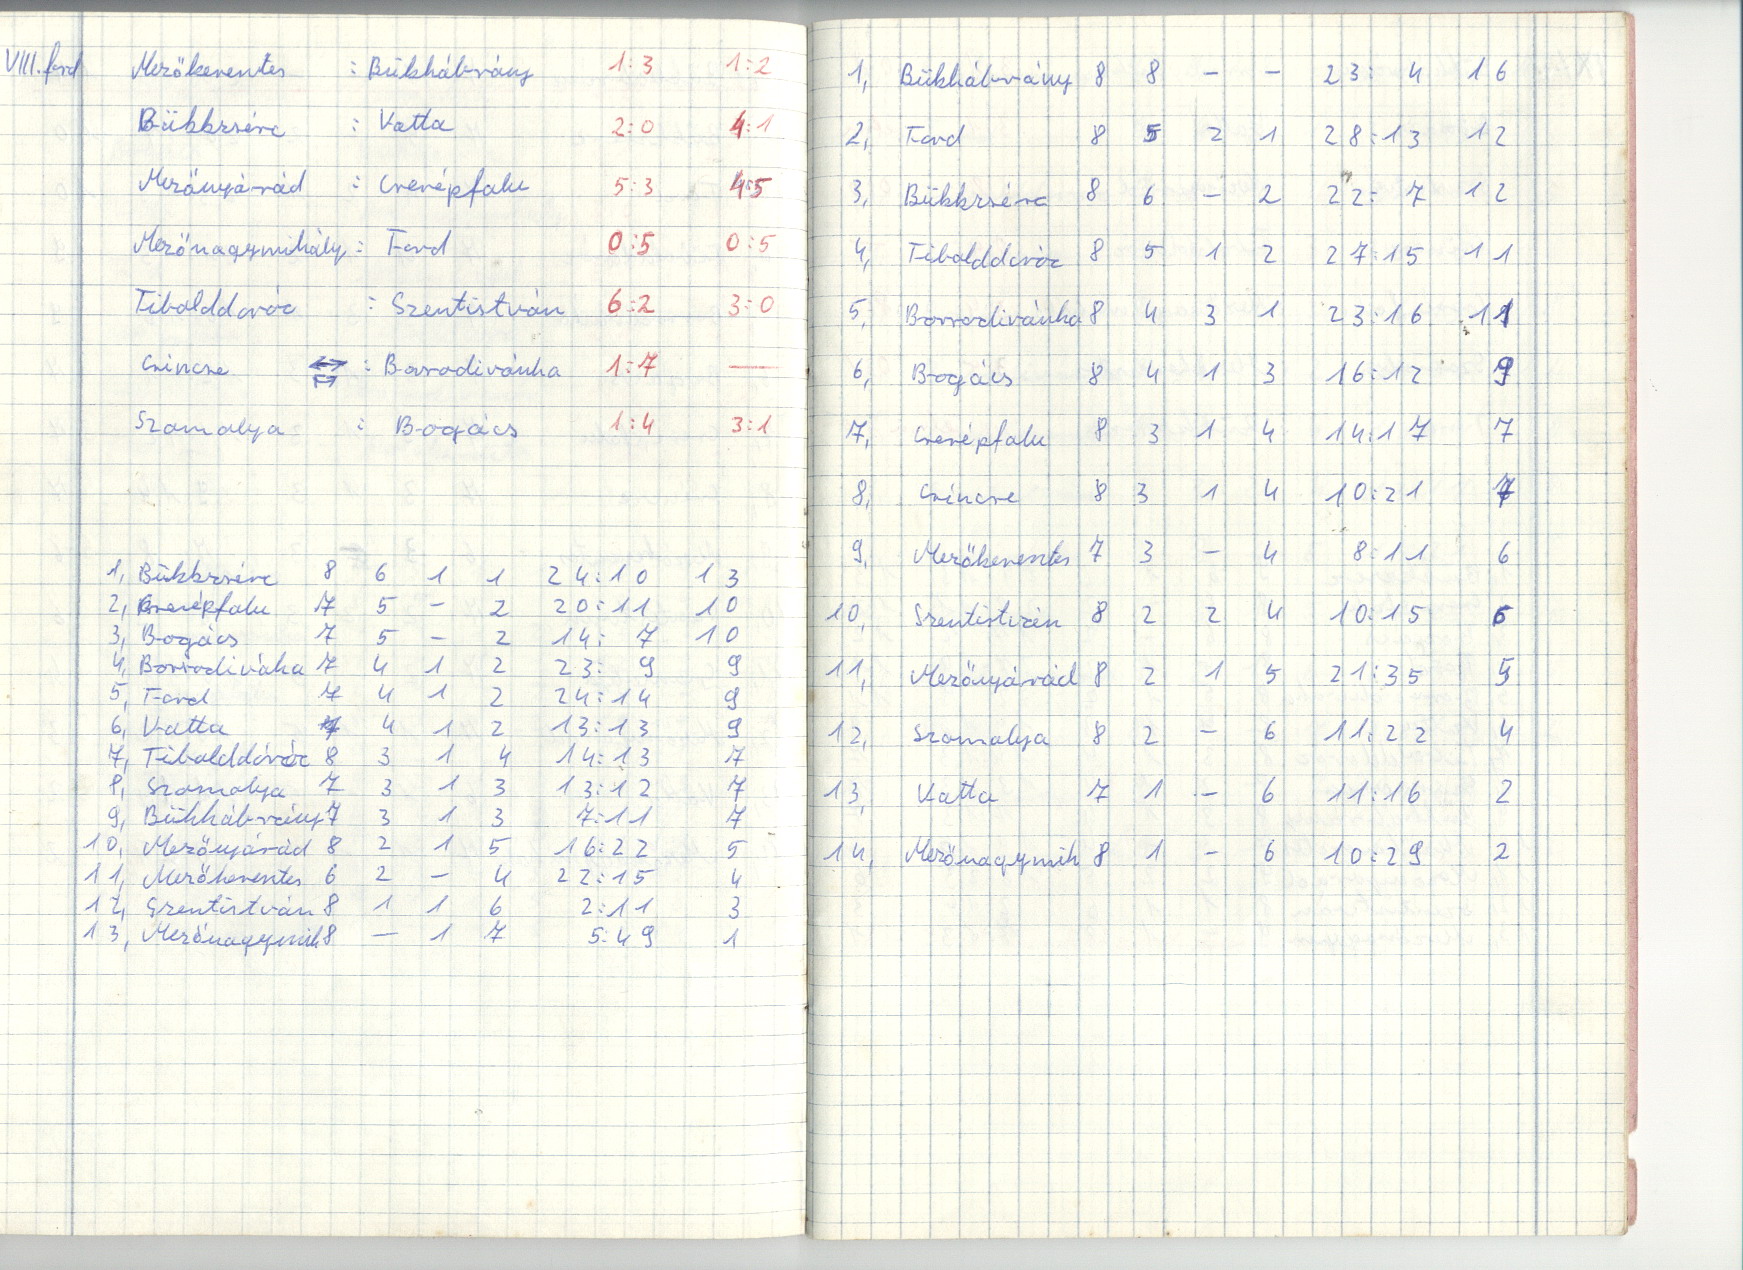 VIII. ford Mezőkeresztes : Bükkábrány 1:3 1:2
Bükkzsérc : Vatta 2:0 4:1
Mezőnyárád : Cserépfalu 5:3 4:5
Mezőnagymihály : Fard 0:5 0:5
Tibolddaróc : Szentistván 6:2 3:0
Csincse ↔ : Borsodivánka 1:7 —
Szomolya : Bogács 1:4 3:1
1, Bükkzsérc 8 6 1 1 24:10 13
2, Cserépfalu 7 5 - 2 20:11 10
3, Bogács 7 5 - 2 14:7 10
4, Borsodiváka 7 4 1 2 23:9 9
5, Fard 7 4 1 2 24:14 9
6, Vatta 7 4 1 2 13:13 9
7, Tibolddóróc 8 3 1 4 14:13 7
8, Szomolya 7 3 1 3 13:12 7
9, Bükkábrány 7 3 1 3 7:11 7
10, Mezőnyárád 8 2 1 5 16:22 5
11, Mezőkeresztes 6 2 - 4 22:15 4
12, Szentistván 8 1 1 6 2:11 3
13, Mezőnagymih 8 - 1 7 5:49 1
1, Bükkábrány 8 8 - - 23:4 16
2, Fard 8 5 2 1 28:13 12
3, Bükkzsérc 8 6 - 2 22:7 12
4, Tibolddaróc 8 5 1 2 27:15 11
5, Borsodivánka 8 4 3 1 23:16 11
6, Bogács 8 4 1 3 16:12 9
7, Cserépfalu 8 3 1 4 14:17 7
8, Csincse 8 3 1 4 10:21 7
9, Mezőkeresztes 7 3 - 4 8:11 6
10, Szentistván 8 2 2 4 10:15 6
11, Mezőnyárád 8 2 1 5 21:35 5
12, Szomolya 8 2 - 6 11:22 4
13, Vatta 7 1 - 6 11:16 2
14, Mezőnagymih 8 1 - 6 10:29 2